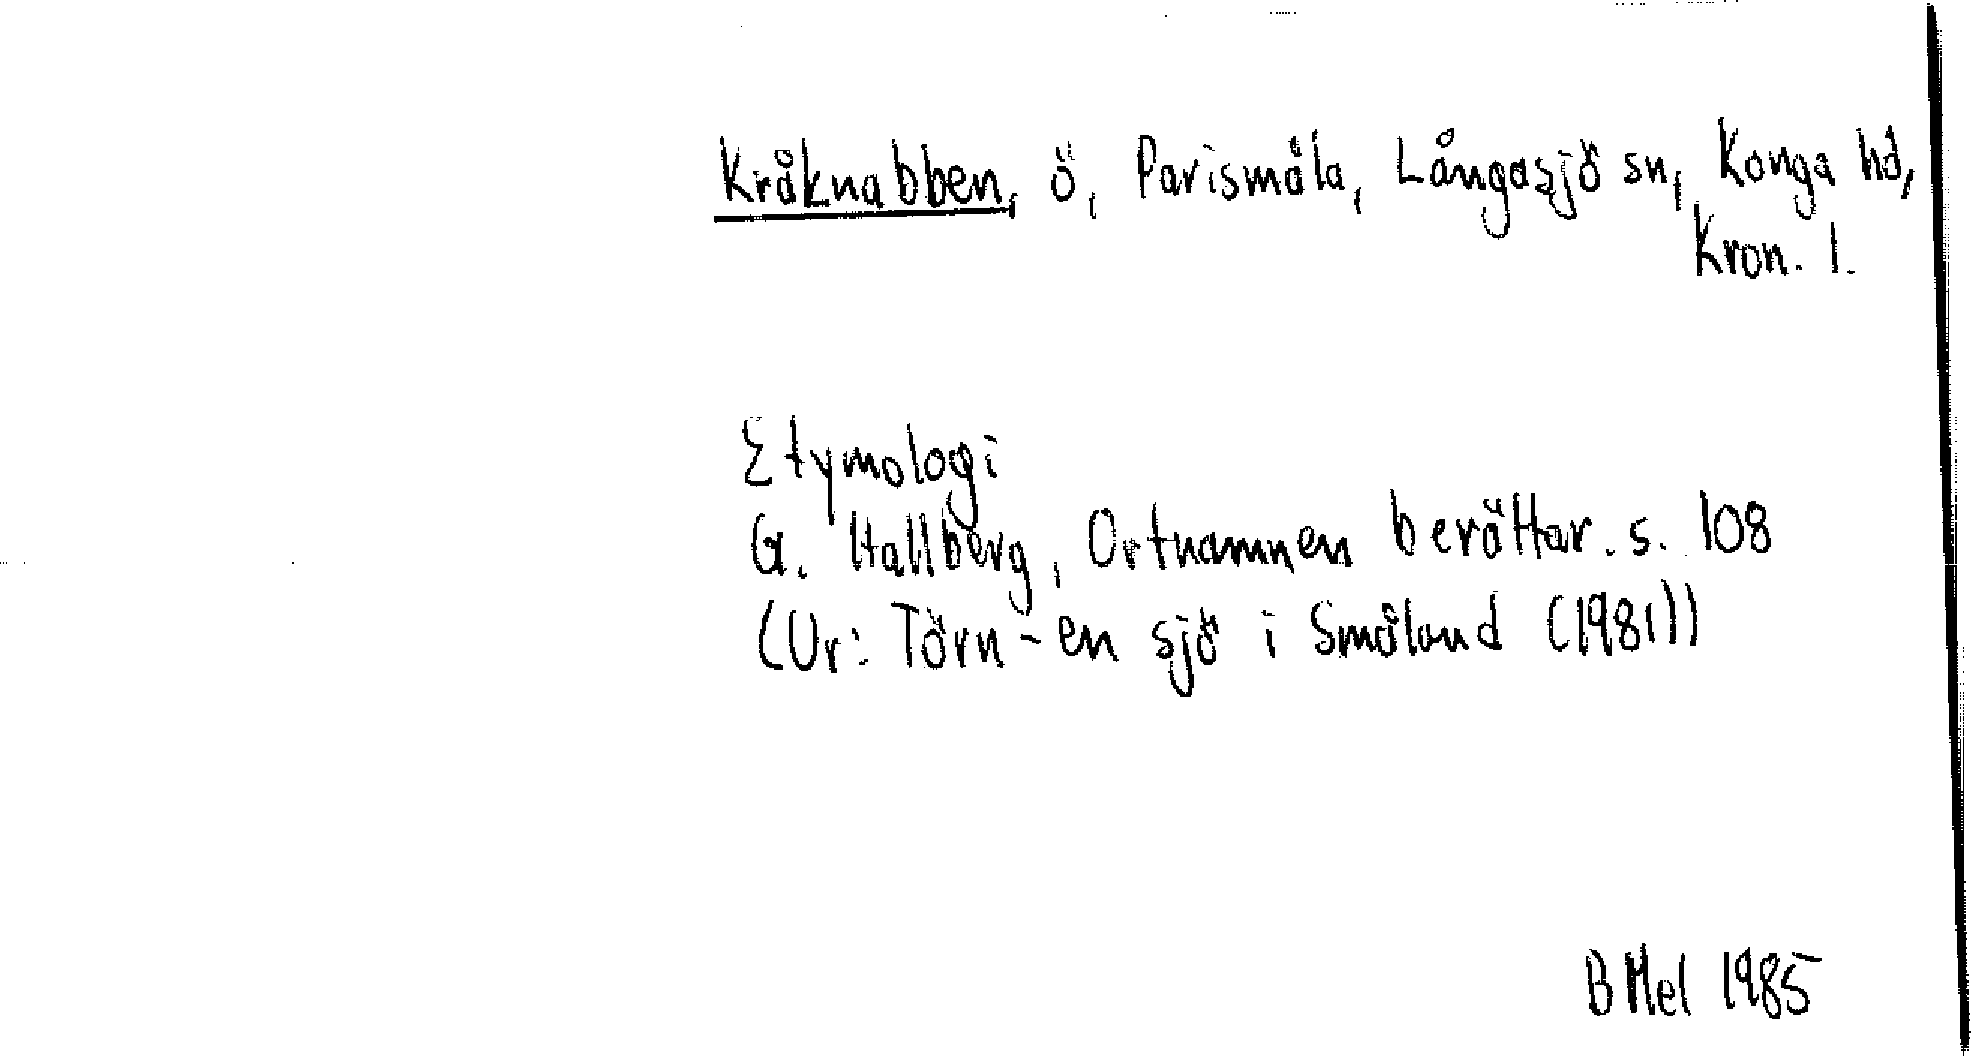 Kråknabben, ö, Parismåla, Långasjö sn, Konga hd,
Kron. l.
Etymologi
G. Hallberg, Ortnamnen berättar. s. 108
(Ur: Törn - en sjö i Småland (1981))
B Mel 1985